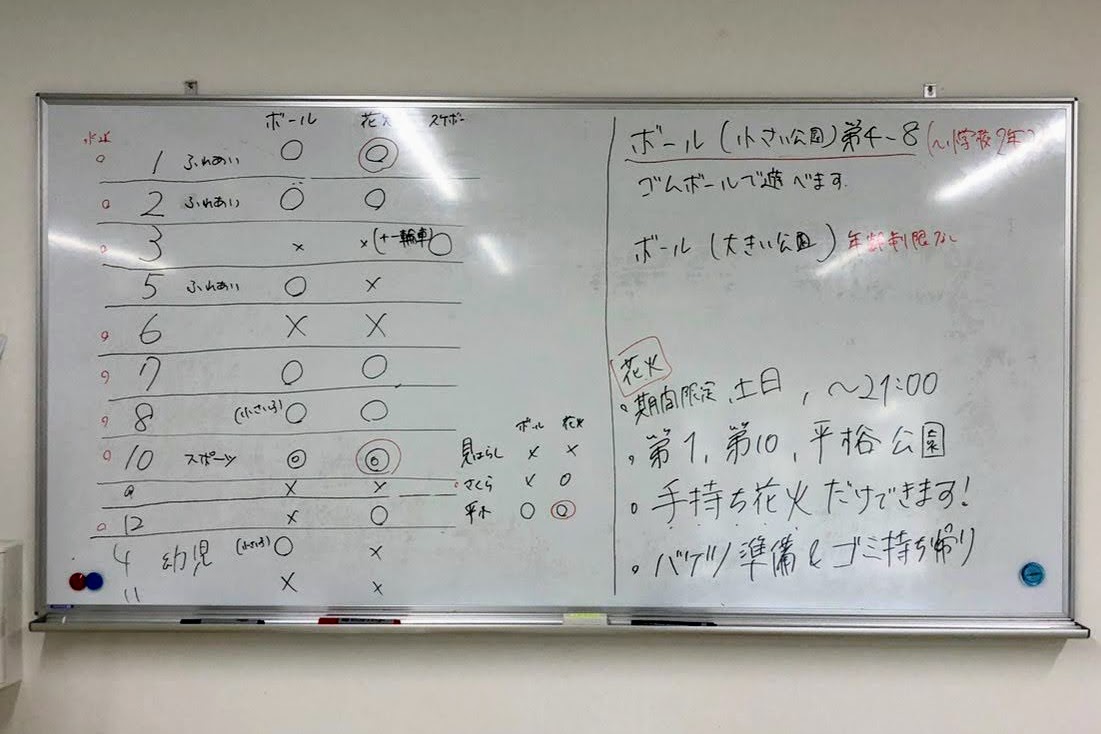 ボール 花火 スケボー
1 ふれあい ○ ◎
2 ふれあい ○ ○
3 × ×(+一輪車) ○
5 ふれあい ○ ×
6 × ×
7 ○ ○
8 (小さい子) ○ ○
10 スポーツ ◎ ◎
9 × ×
12 × ○
4 幼児 (小さい子) ○ ×
11 × ×
ボール 花火
見はらし × ×
さくら × ○
平木 ○ ◎
ボール (小さい公園) 第4-8 (~小学校2年)
ゴムボールで遊べます.
ボール (大きい公園) 年齢制限なし
花火
・期間限定, 土日, ~21:00
・第1, 第10, 平裕公園
・手持ち花火だけできます!
・バケツ準備&ゴミ持ち帰り